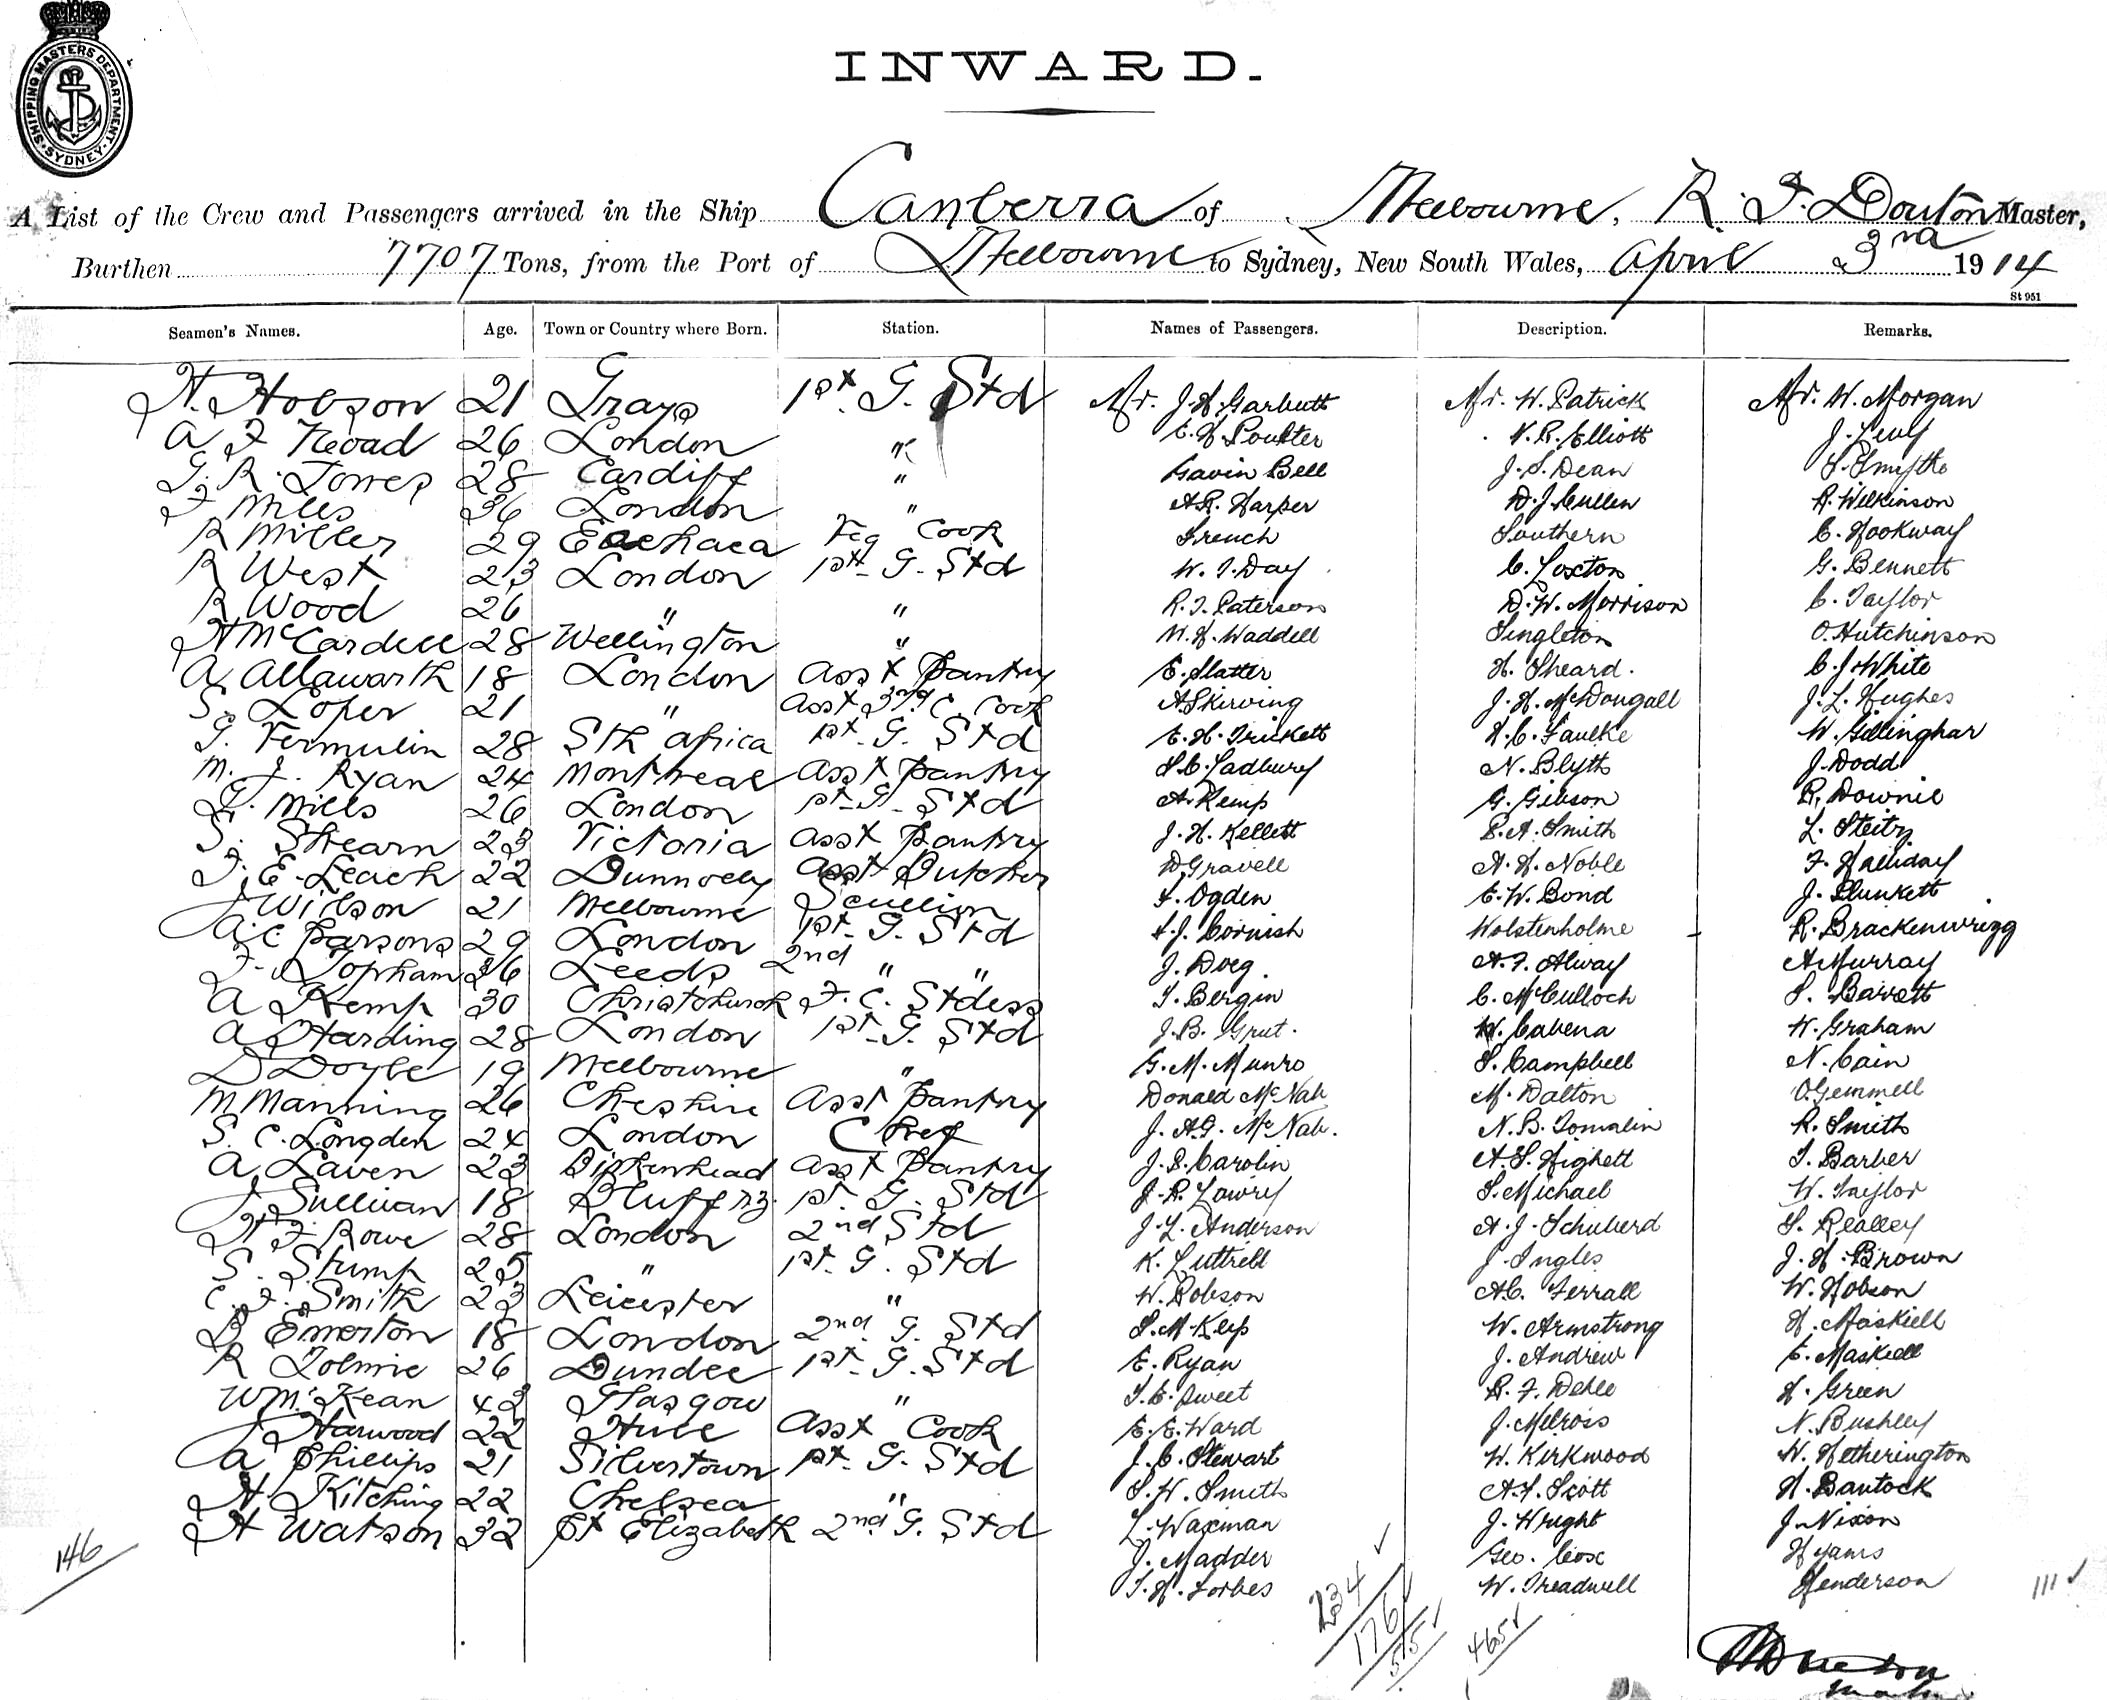 SHIPPING MASTERS DEPARTMENT
SYDNEY
INWARD.
A List of the Crew and Passengers arrived in the Ship Canberra of Melbourne, R. J. Douton Master,
Burthen 7707 Tons, from the Port of Melbourne to Sydney, New South Wales, April 3rd 1914
St 951
Seamen's Names. Age. Town or Country where Born. Station. Names of Passengers. Description. Remarks.
H. Hobson 21 Grays 1st. G. Std Mr. J. H. Garbutt Mr. W. Patrick Mr. W. Morgan
A F Nood 26 London " E. H. Poulter N. R. Elliott J. Levy
G. R. Jones 28 Cardiff " Gavin Bell J. S. Dean S. Smythe
F Mills 36 London " A. R. Harper D. J. Cullen R. Wilkinson
R Miller 29 Echuca Veg Cook French Southern C. Hookway
R West 23 London 1st G. Std W. J. Day C. Loxton G. Bennett
R Wood 26 " " R. J. Paterson D. W. Morrison C. Taylor
H McCardell 28 Wellington " W. H. Waddell Singleton O. Hutchinson
A Allawarth 18 London Asst Pantry E. Slatter H. Sheard. C. J. White
S. Loper 21 " Asst 3rd C. Cook A Skirving J. H. McDougall J. L. Hughes
G. Vermulin 28 Sth Africa 1st. G. Std E. H. Trickett H. C. Faulke W. Gillinghar
M. J. Ryan 24 Montreal Asst Pantry S. C. Ladbury N. Blyth J. Dodd
G. Mills 26 London 1st G. Std A. Kemp G. Gibson R. Downie
S. Shearn 23 Victoria Asst Pantry J. H. Kellett P. A. Smith L. Steitz
F. E. Leach 22 Dunnolly Asst Butcher D Gravell A. H. Noble F. Halliday
J Wilson 21 Melbourne Scullion F. Ogden E. W. Bond J. Plunkett
A. C Parsons 29 London 1st. G. Std A. J. Cornish Wolstenholme R. Brackenwrigg
F. Topham 26 Leeds 2nd " " J. Doeg. A. F. Alway A Murray
A Kemp 30 Christchurch F. C. Stdess T. Bergin C. McCulloch S. Barrett
A Harding 28 London 1st. G. Std J. B. Grut. W. Cabena W. Graham
D Doyle 19 Melbourne " G. M. Munro S. Campbell N. Cain
M Manning 26 Cheshire Asst Pantry Donald McNab M. Dalton O. Gemmell
S. C. Longden 24 London Chef J. A. G. McNab. N. B. Tomalin R. Smith
A Laven 23 Birkenhead Asst Pantry J. S. Carolin A. S. Highett T. Barber
J Sullivan 18 Bluff NZ 1st. G. Std J. R. Lowry S. Michael W. Taylor
H F Rowe 28 London 2nd Std J. L. Anderson A. J. Schuberd S. Realley
S. Stump 25 " 1st. G. Std K. Luttrell J. Ingles J. H. Brown
C. J. Smith 23 Leicester " W. Robson A C. Ferrall W. Hobson
B Emerton 18 London 2nd. G. Std S. M. Keys W. Armstrong H. Maskiell
R Tolmie 26 Dundee 1st. G. Std E. Ryan J. Andrew E. Maskiell
W Mc Kean 43 Glasgow " T. C. Sweet R. F. Dehle H. Green
J Harwood 22 Hull Asst Cook E. E. Ward J. Melrois N. Bushley
A Phillips 21 Silvertown 1st. G. Std J. C. Stewart W. Kirkwood W. Hetherington
H. Kitching 22 Chelsea " S. W. Smith A. F. Scott H. Bantock
H Watson 32 Pt Elizabeth 2nd G. Std L. Waxman J. Wright J. Nixon
J. Madder Geo. Cox Hyams
T. H. Forbes W. Treadwell Henderson
146 234 176 55 465 111